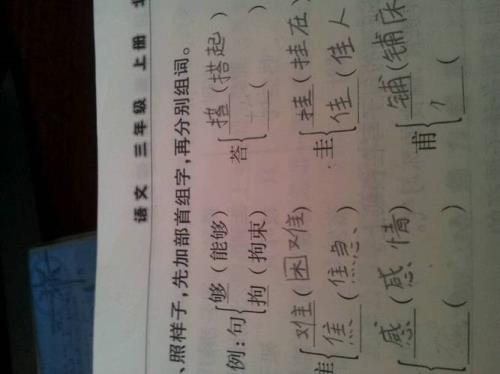 语文 三年级 上册
、照样子,先加部首组字,再分别组词。
例:句 够(能够) 荅 搭(搭起)
拘(拘束) (
隹 难(困难) 圭 挂(挂在
焦(焦急) 佳(佳人
感(感情) 甫 铺(铺床
( (